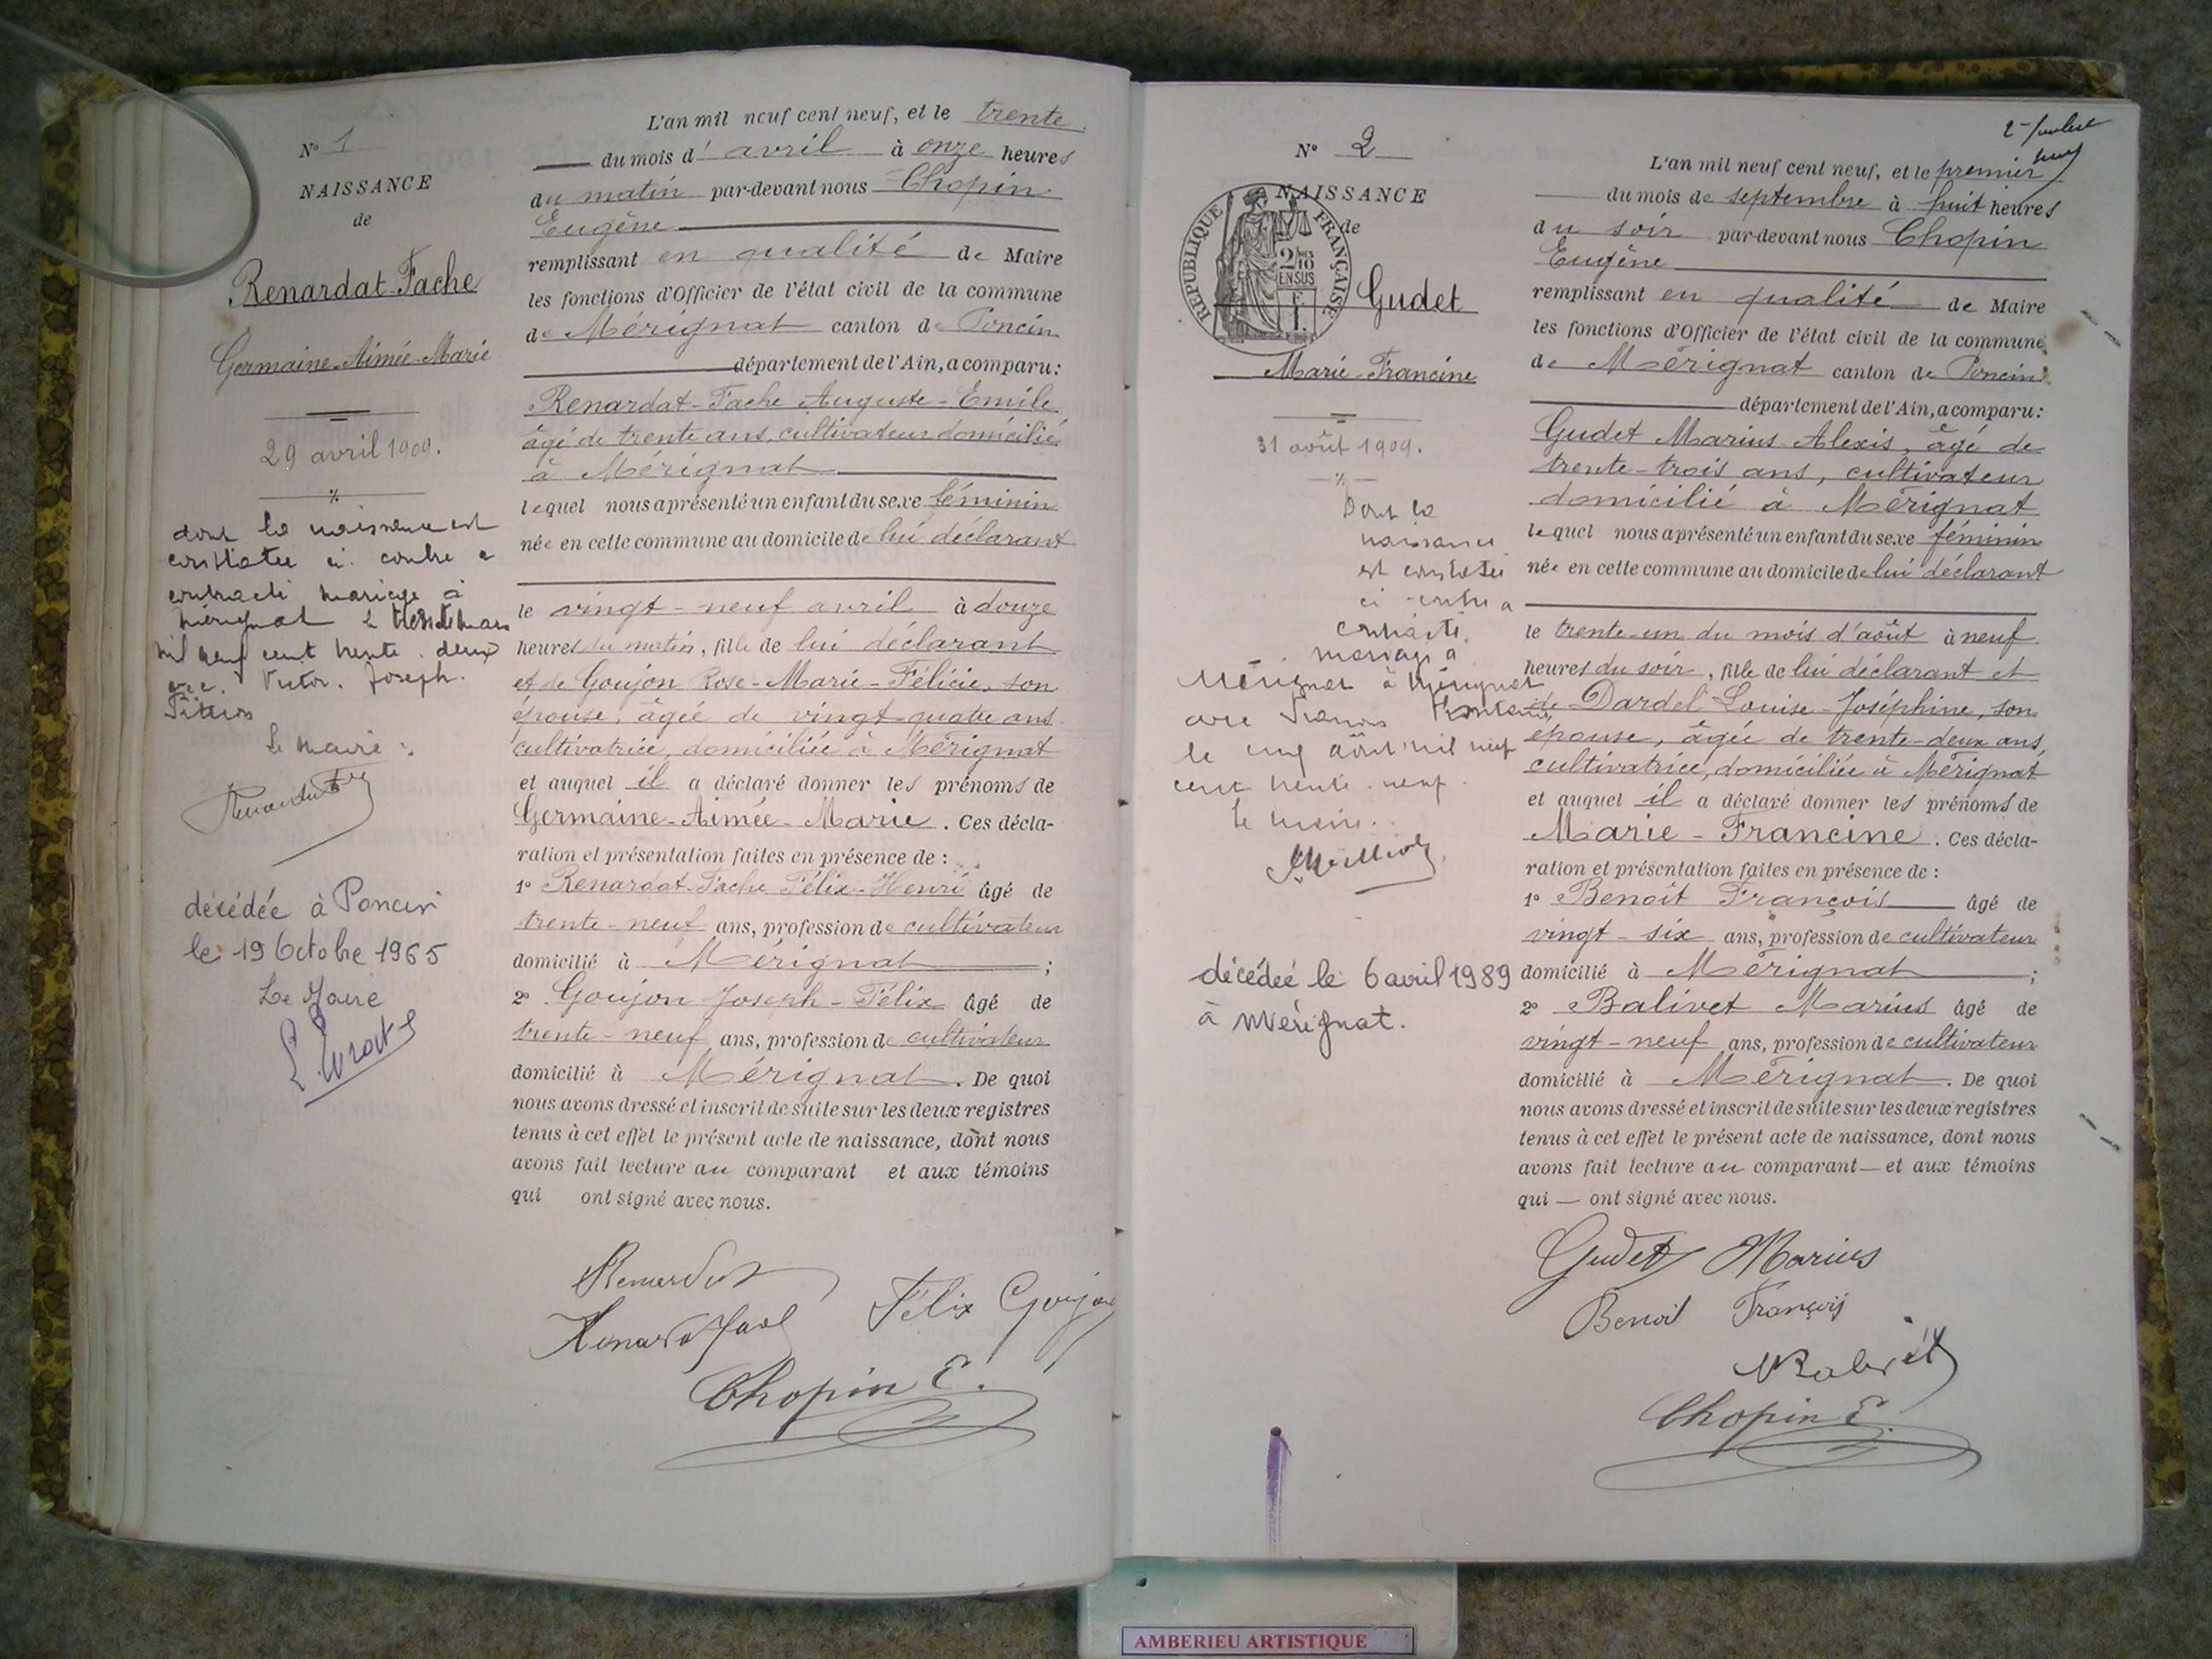 N° 1
NAISSANCE
de
Renardat-Fache
Germaine-Aimée-Marie
29 avril 1909.
dont la naissance est
constatée ci-contre a
contracté mariage à
Mérignat le
mil neuf cent trente-deux
avec Victor Joseph
Le maire :
décédée à Poncin
le 19 Octobre 1965
Le Maire
L'an mil neuf cent neuf, et le trente
du mois d'avril à onze heures
du matin par-devant nous Chopin
Eugène
remplissant en qualité de Maire
les fonctions d'Officier de l'état civil de la commune
de Mérignat canton de Poncin
département de l'Ain, a comparu :
Renardat-Fache Auguste-Emile
âgé de trente ans, cultivateur domicilié
à Mérignat
lequel nous a présenté un enfant du sexe féminin
née en cette commune au domicile de lui déclarant
le vingt-neuf avril à douze
heures du matin, fille de lui déclarant
et de Goujon Rose-Marie-Félicie, son
épouse, âgée de vingt-quatre ans
cultivatrice, domiciliée à Mérignat
et auquel il a déclaré donner les prénoms de
Germaine-Aimée-Marie. Ces décla-
ration et présentation faites en présence de :
1° Renardat-Fache Félix-Henri âgé de
trente-neuf ans, profession de cultivateur
domicilié à Mérignat ;
2° Goujon Joseph-Félix âgé de
trente-neuf ans, profession de cultivateur
domicilié à Mérignat. De quoi
nous avons dressé et inscrit de suite sur les deux registres
tenus à cet effet le présent acte de naissance, dont nous
avons fait lecture au comparant et aux témoins
qui ont signé avec nous.
Renardat
Félix Goujon
Chopin E.
N° 2
NAISSANCE
de
REPUBLIQUE FRANÇAISE
2/10 EN SUS
Gudet
Marie-Francine
31 août 1909.
Dont la
naissance
est constatée
ci-contre a
contracté
mariage à
Mérignat à Mérignat
avec Francis
le cinq août mil neuf
cent trente-neuf.
le maire.
décédée le 6 avril 1989
à Mérignat.
L'an mil neuf cent neuf, et le premier
du mois de septembre à huit heures
du soir par-devant nous Chopin
Eugène
remplissant en qualité de Maire
les fonctions d'Officier de l'état civil de la commune
de Mérignat canton de Poncin
département de l'Ain, a comparu :
Gudet Marius Alexis, âgé de
trente-trois ans, cultivateur
domicilié à Mérignat
lequel nous a présenté un enfant du sexe féminin
née en cette commune au domicile de lui déclarant
le trente-un du mois d'août à neuf
heures du soir, fille de lui déclarant et
de Dardel Louise-Joséphine, son
épouse, âgée de trente-deux ans,
cultivatrice, domiciliée à Mérignat
et auquel il a déclaré donner les prénoms de
Marie-Francine. Ces décla-
ration et présentation faites en présence de :
1° Benoît François âgé de
vingt-six ans, profession de cultivateur
domicilié à Mérignat ;
2° Balivet Marius âgé de
vingt-neuf ans, profession de cultivateur
domicilié à Mérignat. De quoi
nous avons dressé et inscrit de suite sur les deux registres
tenus à cet effet le présent acte de naissance, dont nous
avons fait lecture au comparant — et aux témoins
qui — ont signé avec nous.
Gudet Marius
Benoit François
Chopin E.
AMBERIEU ARTISTIQUE